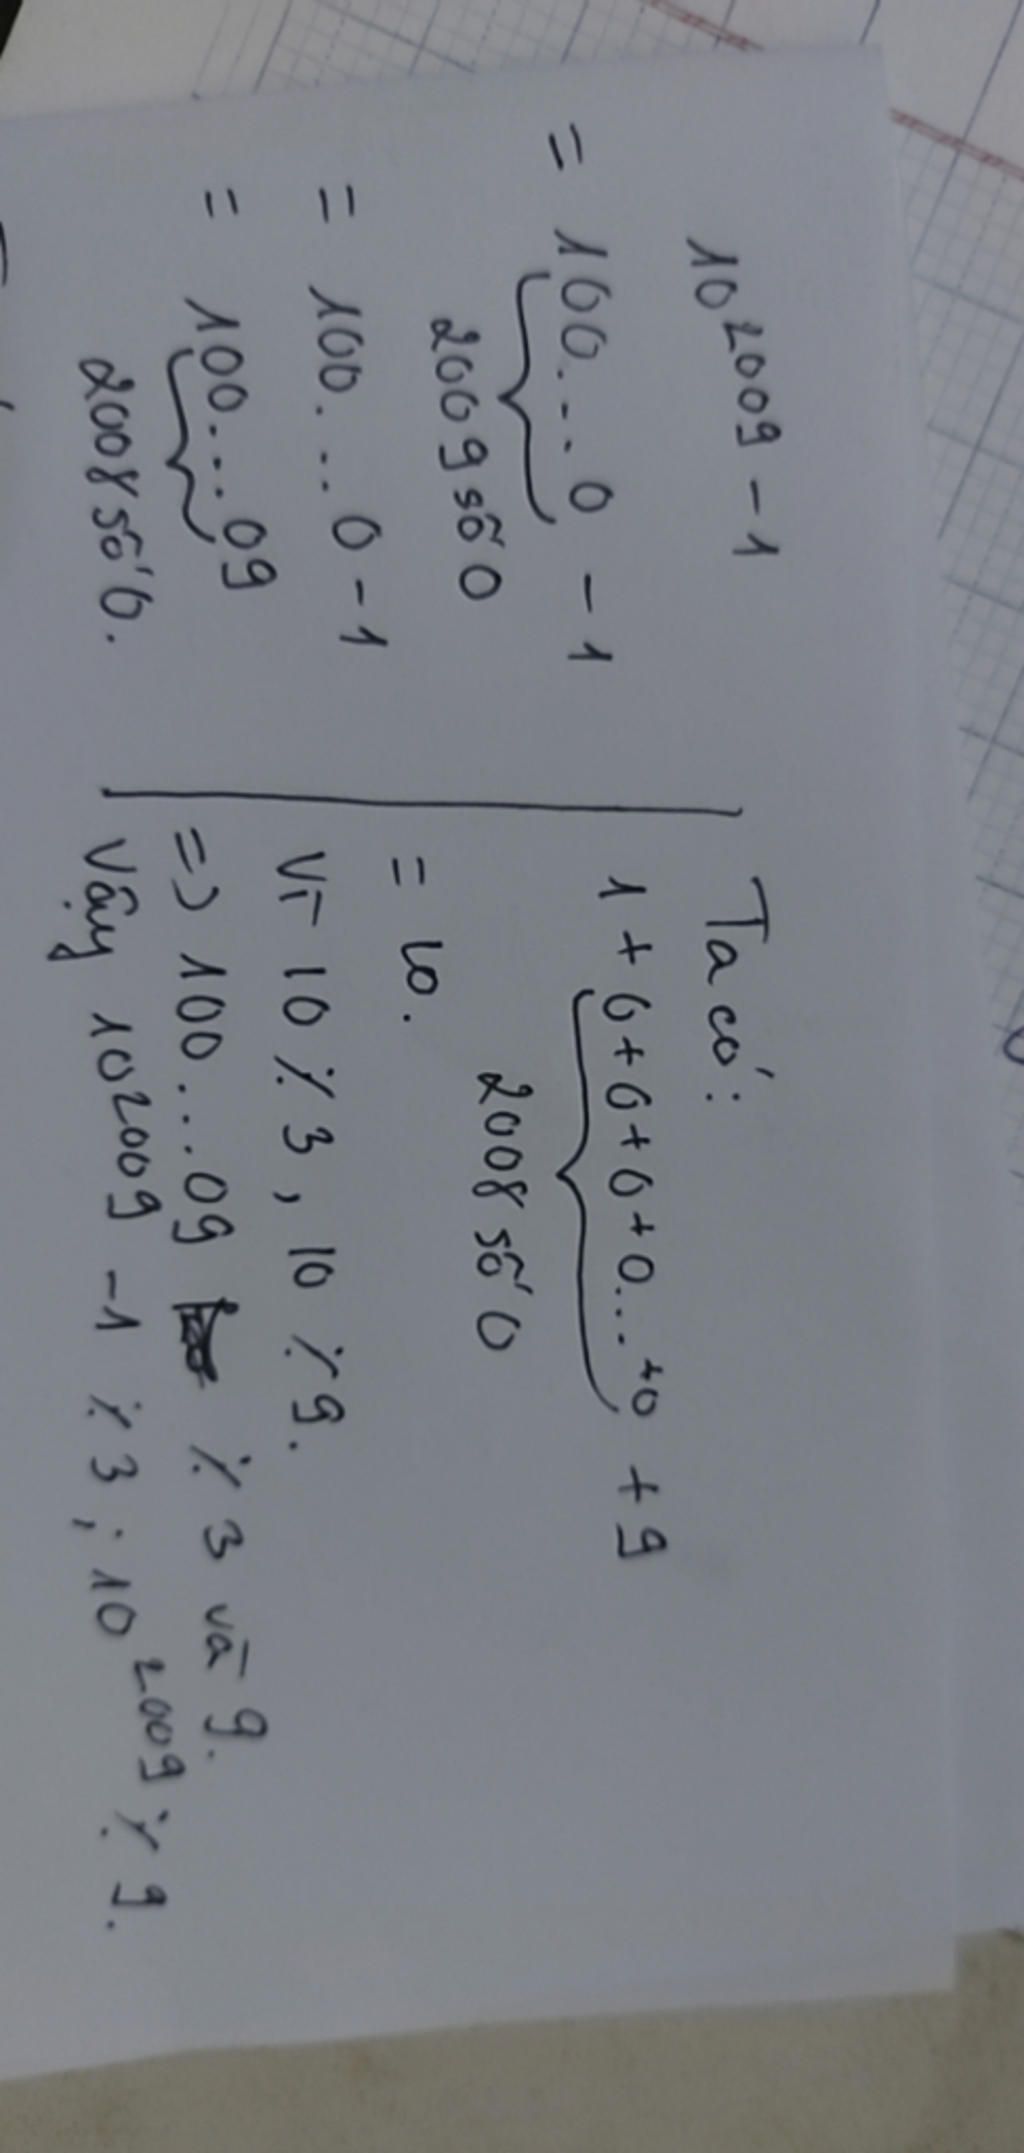 10²⁰⁰⁹ - 1
= 100...0 - 1
2009 số 0
= 100...0 - 1
= 100...09
2008 số 0.
Ta có:
1 + 0 + 0 + 0 + 0... + 0 + 9
2008 số 0
= 10.
Vì 10 ⋮̸ 3, 10 ⋮̸ 9.
=> 100...09 ⋮̸ 3 và 9.
Vậy 10²⁰⁰⁹ - 1 ⋮̸ 3; 10²⁰⁰⁹ ⋮̸ 9.